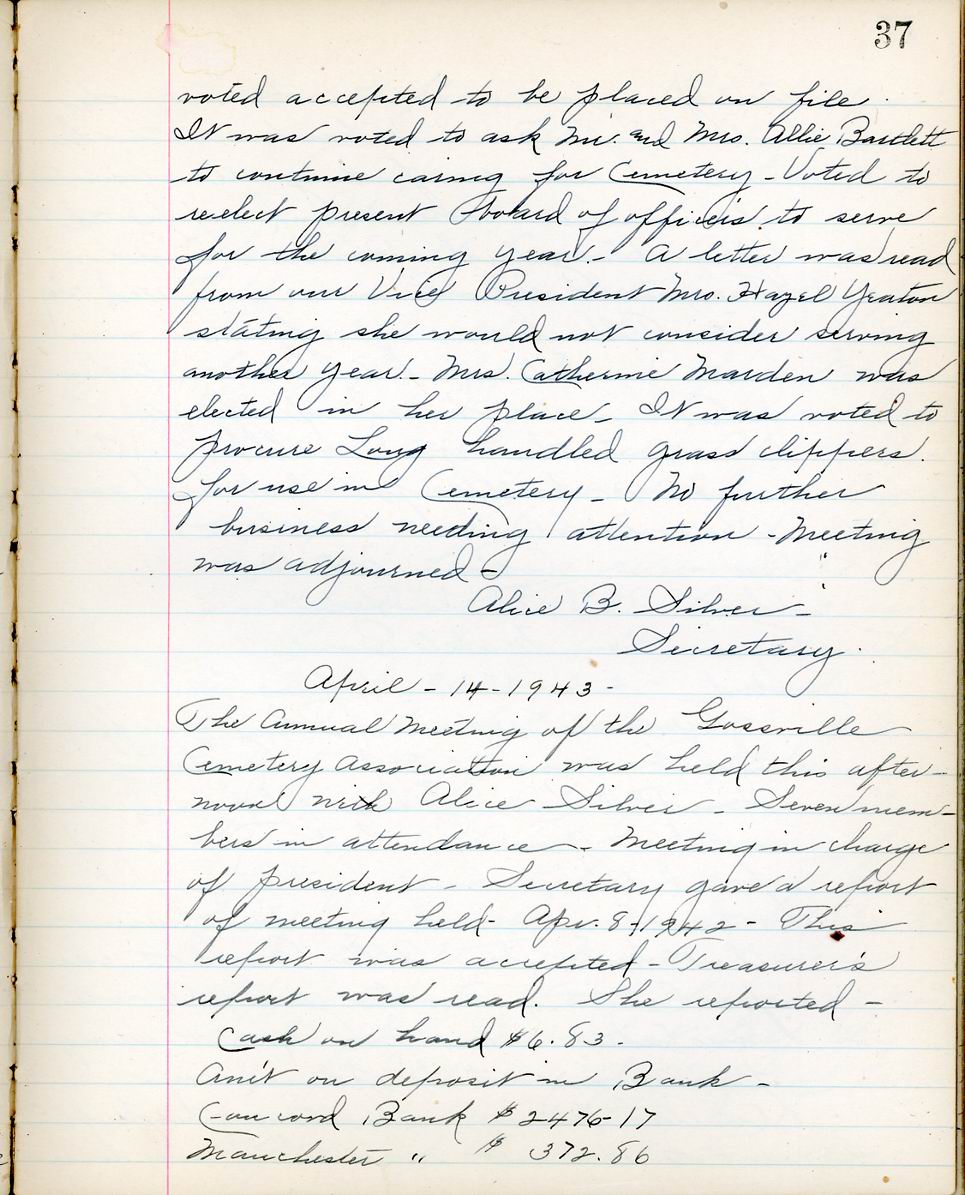 37
voted accepted to be placed on file.
It was voted to ask Mr. and Mrs. Allie Bartlett
to continue caring for Cemetery - Voted to
reelect present board of officers to serve
for the coming year. - A letter was read
from our Vice President Mrs. Hazel Yeaton
stating she would not consider serving
another year. - Mrs. Catherine Marden was
elected in her place - It was voted to
procure Long handled grass clippers.
for use in Cemetery - No further
business needing attention - Meeting
was adjourned -
Alice B. Silver -
Secretary.
April - 14 - 1943 -
The Annual Meeting of the Gossville
Cemetery Association was held this after-
noon with Alice Silver - Seven mem-
bers in attendance - Meeting in charge
of president - Secretary gave a report
of meeting held - Apr. 8 - 1942 - This
report was accepted - Treasurer's
report was read. She reported -
Cash on hand $6.83 -
Am't on deposit in Bank -
Concord Bank $2476-17
Manchester " $ 372.86